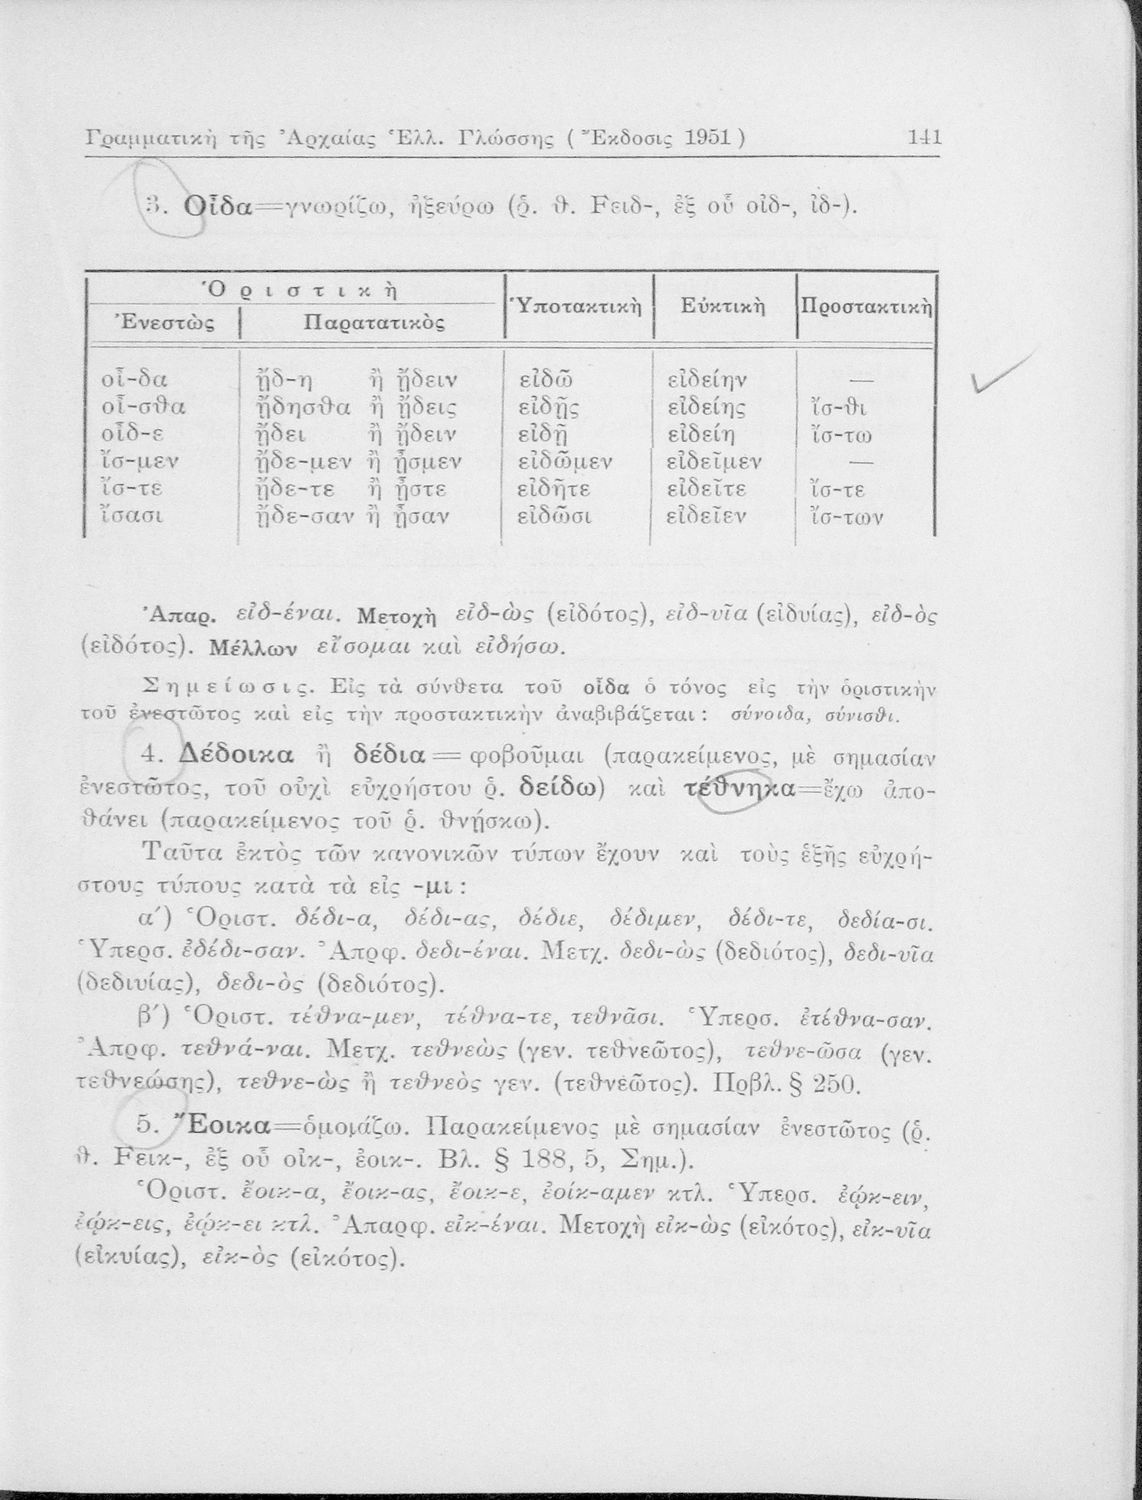 Γραμματικὴ τῆς Ἀρχαίας Ἑλλ. Γλώσσης ( Ἔκδοσις 1951 ) 141
3. Οἶδα=γνωρίζω, ἠξεύρω (ῥ. θ. Fειδ-, ἐξ οὗ οἰδ-, ἰδ-).
Ὁριστικὴ Ὑποτακτικὴ Εὐκτικὴ Προστακτικὴ
Ἐνεστὼς Παρατατικὸς
οἶ-δα ᾔδ-η ἢ ᾔδειν εἰδῶ εἰδείην —
οἶ-σθα ᾔδησθα ἢ ᾔδεις εἰδῇς εἰδείης ἴσ-θι
οἶδ-ε ᾔδει ἢ ᾔδειν εἰδῇ εἰδείη ἴσ-τω
ἴσ-μεν ᾔδε-μεν ἢ ᾖσμεν εἰδῶμεν εἰδεῖμεν —
ἴσ-τε ᾔδε-τε ἢ ᾖστε εἰδῆτε εἰδεῖτε ἴσ-τε
ἴσασι ᾔδε-σαν ἢ ᾖσαν εἰδῶσι εἰδεῖεν ἴσ-των
Ἀπαρ. εἰδ-έναι. Μετοχὴ εἰδ-ὼς (εἰδότος), εἰδ-υῖα (εἰδυίας), εἰδ-ὸς
(εἰδότος). Μέλλων εἴσομαι καὶ εἰδήσω.
Σημείωσις. Εἰς τὰ σύνθετα τοῦ οἶδα ὁ τόνος εἰς τὴν ὁριστικὴν
τοῦ ἐνεστῶτος καὶ εἰς τὴν προστακτικὴν ἀναβιβάζεται : σύνοιδα, σύνισθι.
4. Δέδοικα ἢ δέδια = φοβοῦμαι (παρακείμενος, μὲ σημασίαν
ἐνεστῶτος, τοῦ οὐχὶ εὐχρήστου ῥ. δείδω) καὶ τέθνηκα=ἔχω ἀπο-
θάνει (παρακείμενος τοῦ ῥ. θνῄσκω).
Ταῦτα ἐκτὸς τῶν κανονικῶν τύπων ἔχουν καὶ τοὺς ἑξῆς εὐχρή-
στους τύπους κατὰ τὰ εἰς -μι :
α´) Ὁριστ. δέδι-α, δέδι-ας, δέδιε, δέδιμεν, δέδι-τε, δεδία-σι.
Ὑπερσ. ἐδέδι-σαν. Ἀπρφ. δεδι-έναι. Μετχ. δεδι-ὼς (δεδιότος), δεδι-υῖα
(δεδιυίας), δεδι-ὸς (δεδιότος).
β´) Ὁριστ. τέθνα-μεν, τέθνα-τε, τεθνᾶσι. Ὑπερσ. ἐτέθνα-σαν.
Ἀπρφ. τεθνά-ναι. Μετχ. τεθνεὼς (γεν. τεθνεῶτος), τεθνε-ῶσα (γεν.
τεθνεώσης), τεθνε-ὼς ἢ τεθνεὸς γεν. (τεθνεῶτος). Πρβλ. § 250.
5. Ἔοικα=ὁμοιάζω. Παρακείμενος μὲ σημασίαν ἐνεστῶτος (ῥ.
θ. Fεικ-, ἐξ οὗ οἰκ-, ἐοικ-. Βλ. § 188, 5, Σημ.).
Ὁριστ. ἔοικ-α, ἔοικ-ας, ἔοικ-ε, ἐοίκ-αμεν κτλ. Ὑπερσ. ἐῴκ-ειν,
ἐῴκ-εις, ἐῴκ-ει κτλ. Ἀπαρφ. εἰκ-έναι. Μετοχὴ εἰκ-ὼς (εἰκότος), εἰκ-υῖα
(εἰκυίας), εἰκ-ὸς (εἰκότος).